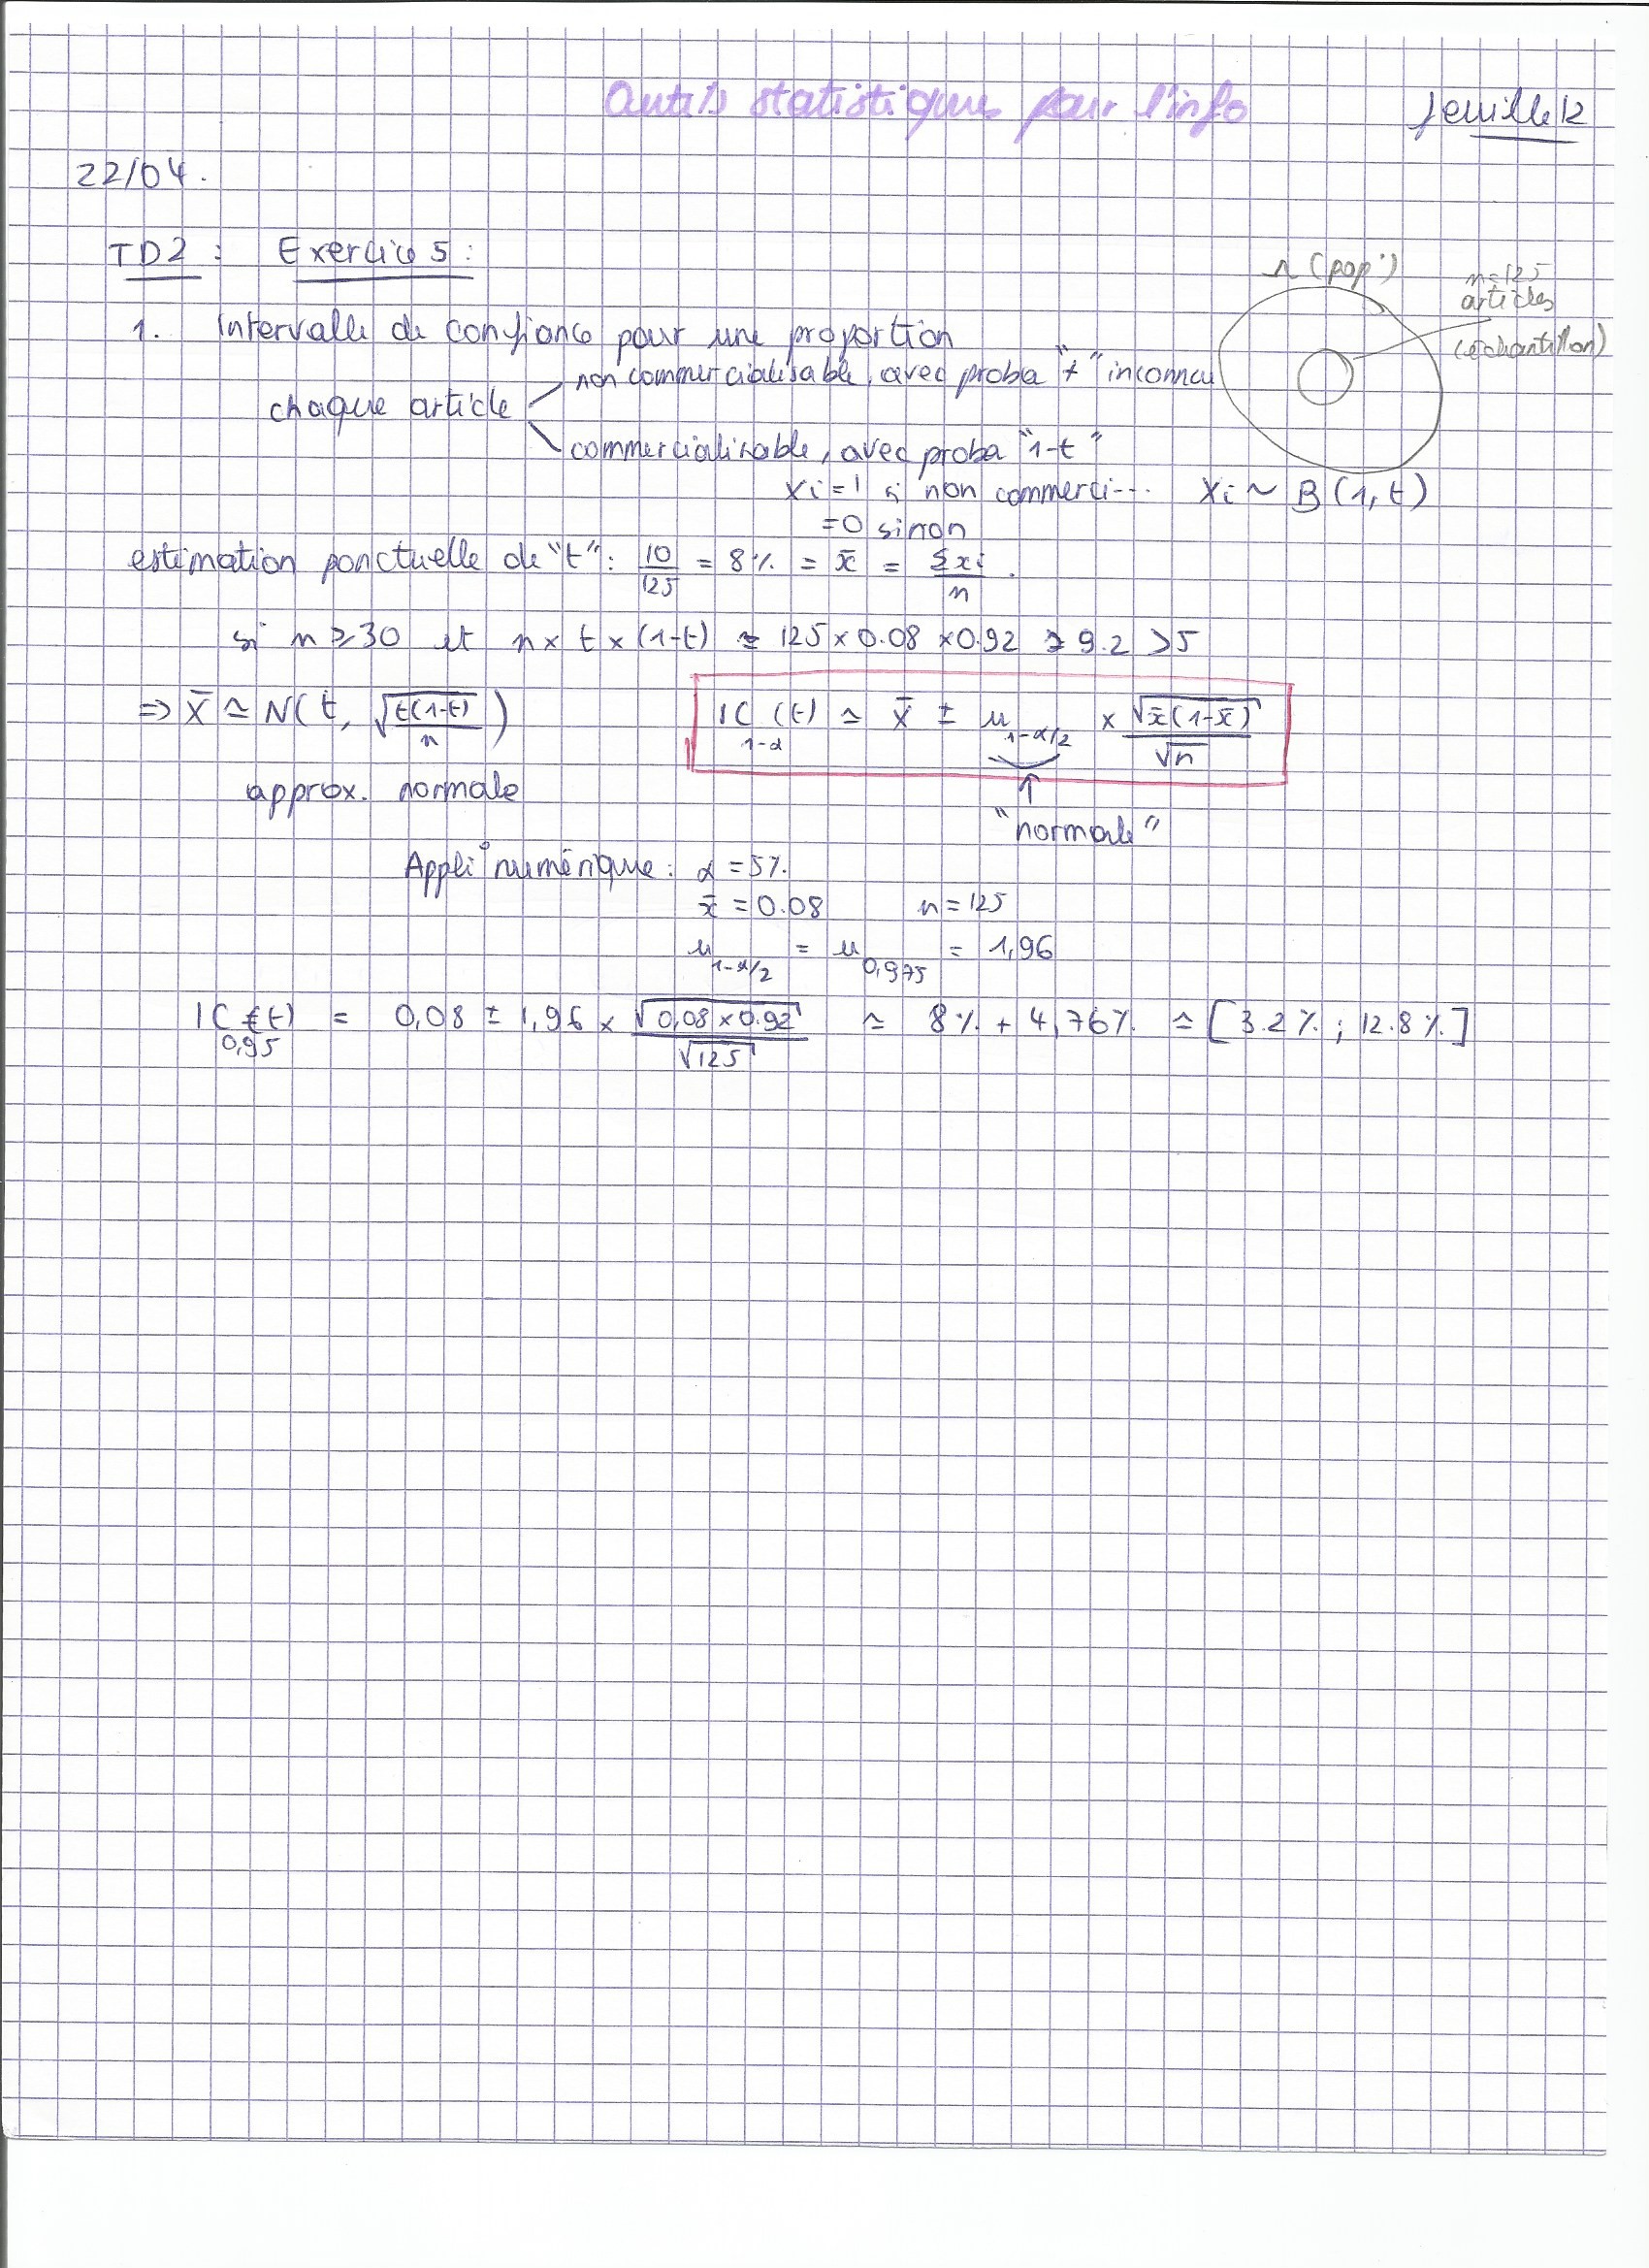 Outils statistiques pour l'info
feuille 12
22/04.
TD2 : Exercice 5 :
n=125
articles
(échantillon)
1. Intervalle de confiance pour une proportion
non commercialisable, avec proba "t" inconnu
chaque article
commercialisable, avec proba "1-t"
xi=1 si non commerci... Xi ~ B(1,t)
=0 sinon
estimation ponctuelle de "t": 10/125 = 8% = x̄ = Σxi/n .
si n ≥ 30 et n × t × (1-t) ≃ 125 × 0.08 × 0.92 ≃ 9.2 >5
=> X̄ ≃ N(t, √(t(1-t))/n)
IC 1-α (t) ≃ x̄ ± u 1-α/2 × √(x̄(1-x̄))/√n
approx. normale
"normale"
Appli° numérique : α = 5%.
x̄ = 0.08 n = 125
u 1-α/2 = u 0,975 = 1,96
IC 0,95 (t) = 0,08 ± 1,96 × √(0,08 × 0.92)/√125 ≃ 8% + 4,76% ≃ [3.2% ; 12.8%]